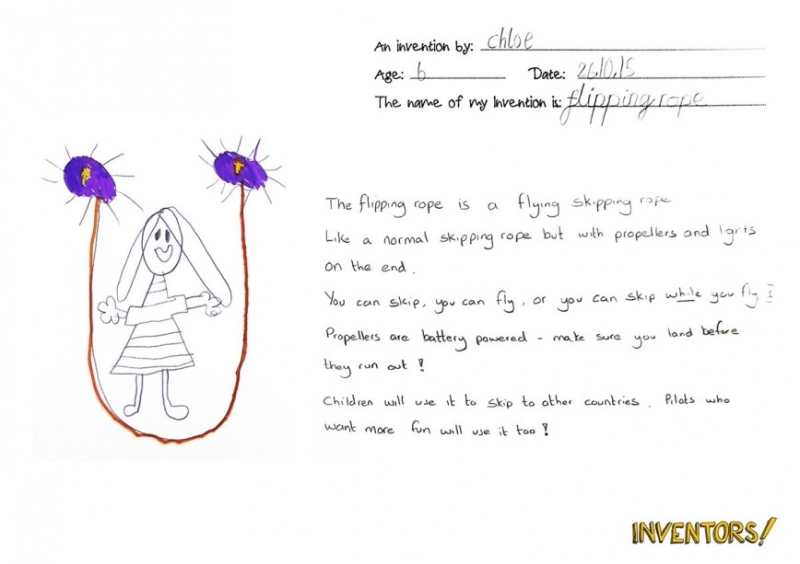 An invention by: chloe
Age: 6 Date: 26.10.15
The name of my Invention is: flipping rope
The flipping rope is a flying skipping rope
Like a normal skipping rope but with propellers and lights
on the end.
You can skip, you can fly, or you can skip while you fly!
Propellers are battery powered - make sure you land before
they run out!
Children will use it to skip to other countries. Pilots who
want more fun will use it too!
INVENTORS!